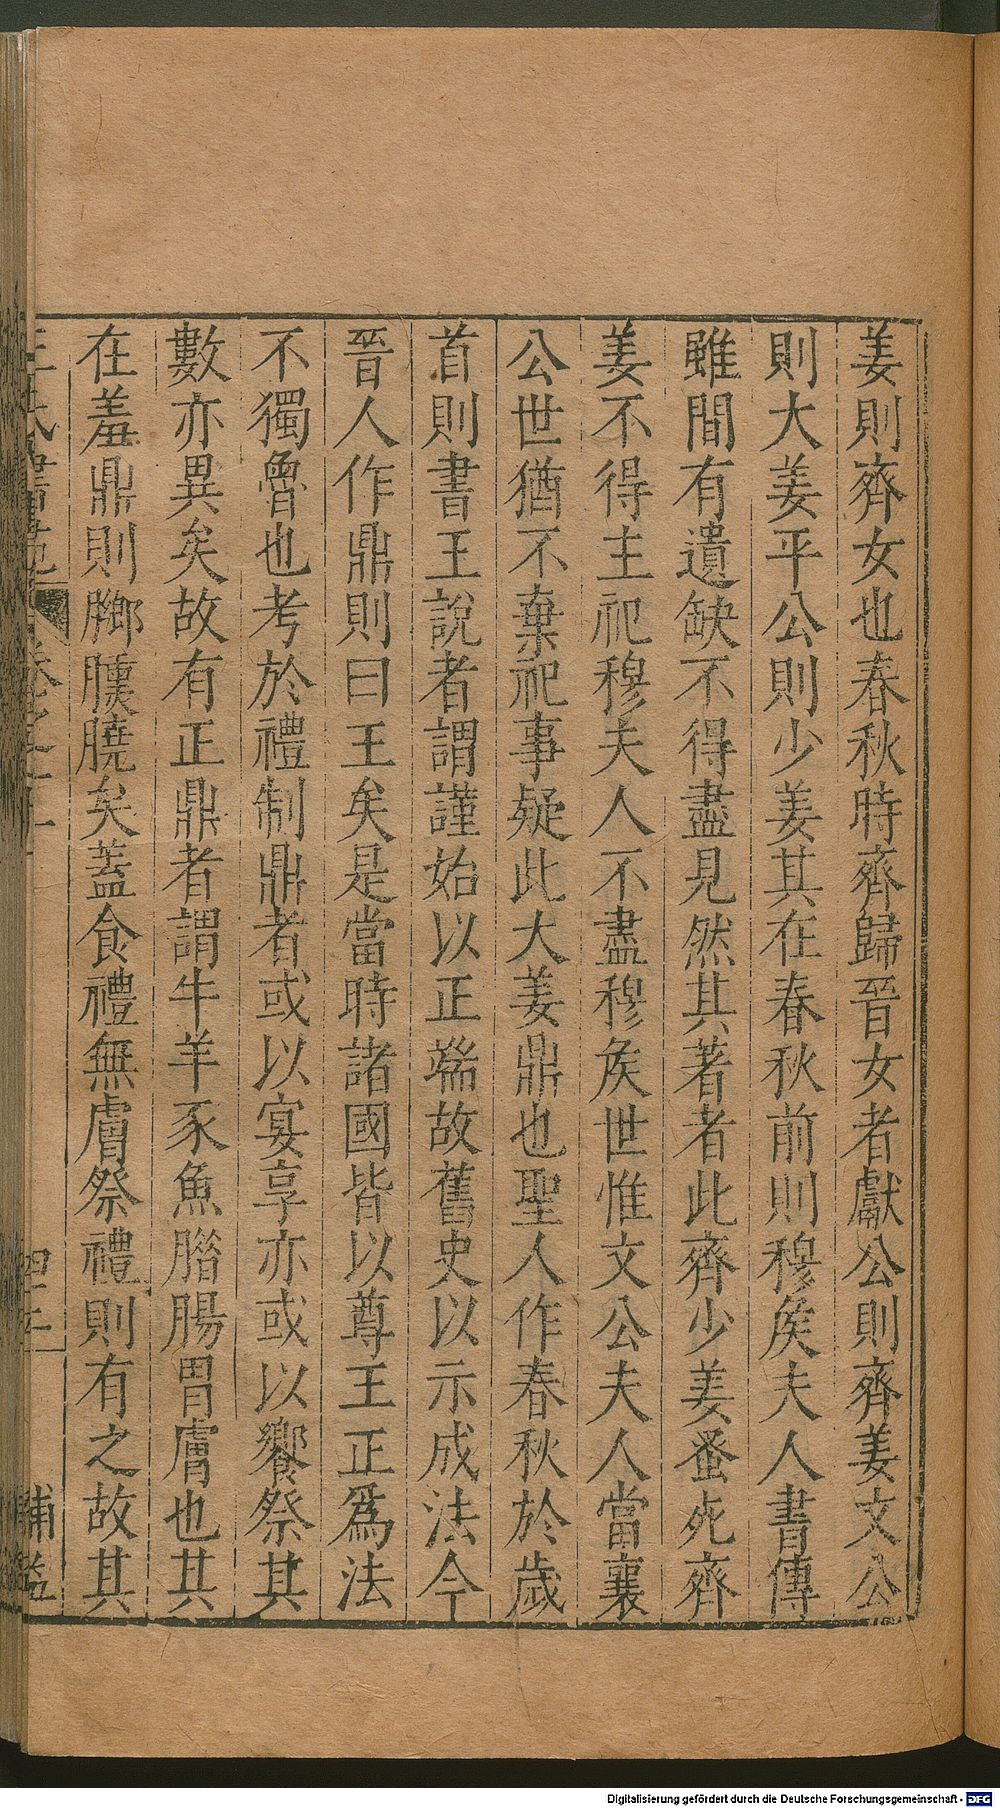 姜則齊女也春秋時齊歸晉女者獻公則齊姜文公
則大姜平公則少姜其在春秋前則穆矦夫人書傳
雖間有遺缺不得盡見然其著者此齊少姜蚤死齊
姜不得主祀穆夫人不盡穆矦世惟文公夫人當襄
公世猶不棄祀事疑此大姜鼎也聖人作春秋於歲
首則書王說者謂謹始以正端故舊史以示成法今
晉人作鼎則曰王矣是當時諸國皆以尊王正爲法
不獨魯也考於禮制鼎者或以宴享亦或以饗祭其
數亦異矣故有正鼎者謂牛羊豕魚腊腸胃膚也其
在羞鼎則膷臐膮矣蓋食禮無膚祭禮則有之故其
王氏書苑
補益
Digitalisierung gefördert durch die Deutsche Forschungsgemeinschaft - DFG